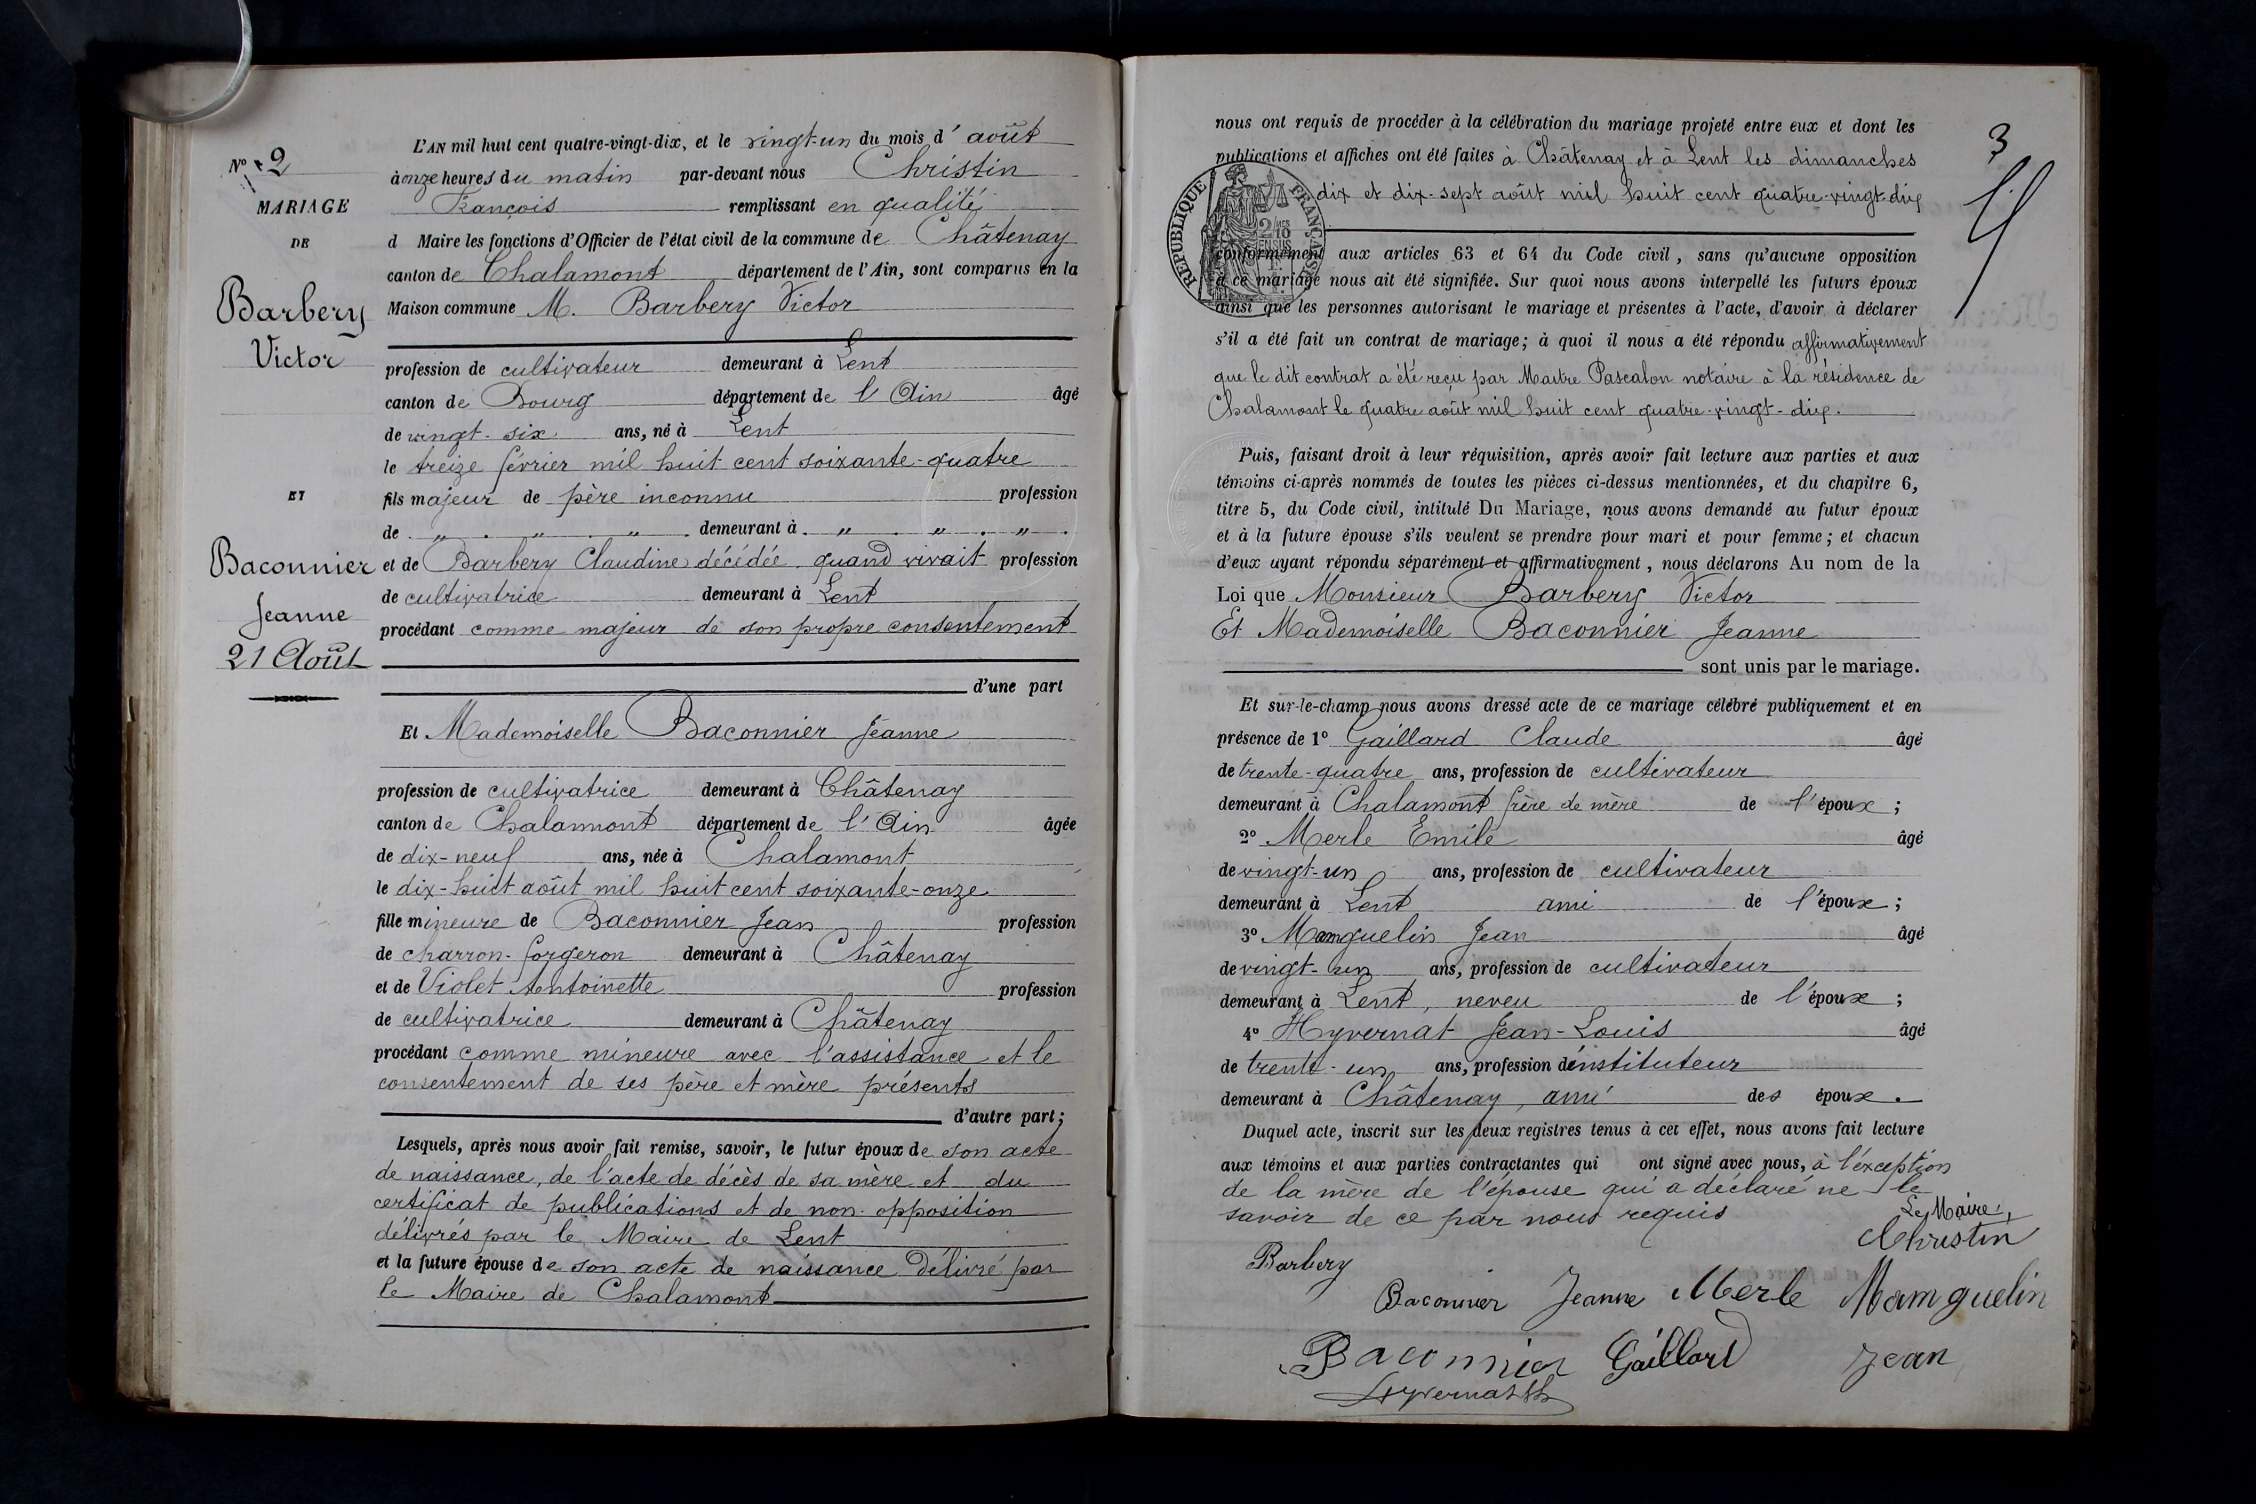 N° 2
MARIAGE
DE
Barbery
Victor
ET
Baconnier
Jeanne
21 Août
L'AN mil huit cent quatre-vingt-dix, et le vingt-un du mois d'août
à onze heures du matin par-devant nous Christin
François remplissant en qualité
d Maire les fonctions d'Officier de l'état civil de la commune de Châtenay
canton de Chalamont département de l'Ain, sont comparus en la
Maison commune M. Barbery Victor
profession de cultivateur demeurant à Lent
canton de Bourg département de l'Ain âgé
de vingt-six ans, né à Lent
le treize février mil huit cent soixante-quatre
fils majeur de père inconnu profession
de " . " . " . demeurant à . " . " . " .
et de Barbery Claudine décédée quand vivait profession
de cultivatrice demeurant à Lent
procédant comme majeur de son propre consentement
d'une part
Et Mademoiselle Baconnier Jeanne
profession de cultivatrice demeurant à Châtenay
canton de Chalamont département de l'Ain âgée
de dix-neuf ans, née à Chalamont
le dix-huit août mil huit cent soixante-onze
fille mineure de Baconnier Jean profession
de charron-forgeron demeurant à Châtenay
et de Violet Antoinette profession
de cultivatrice demeurant à Châtenay
procédant comme mineure avec l'assistance et le
consentement de ses père et mère présents
d'autre part;
Lesquels, après nous avoir fait remise, savoir, le futur époux de son acte
de naissance, de l'acte de décès de sa mère et du
certificat de publications et de non-opposition
délivrés par le Maire de Lent
et la future épouse de son acte de naissance délivré par
le Maire de Chalamont
3
nous ont requis de procéder à la célébration du mariage projeté entre eux et dont les
publications et affiches ont été faites à Châtenay et à Lent les dimanches
dix et dix-sept août mil huit cent quatre-vingt-dix
RÉPUBLIQUE FRANÇAISE
conformément aux articles 63 et 64 du Code civil, sans qu'aucune opposition
à ce mariage nous ait été signifiée. Sur quoi nous avons interpellé les futurs époux
ainsi que les personnes autorisant le mariage et présentes à l'acte, d'avoir à déclarer
s'il a été fait un contrat de mariage; à quoi il nous a été répondu affirmativement
que le dit contrat a été reçu par Maître Pascalon notaire à la résidence de
Chalamont le quatre août mil huit cent quatre-vingt-dix.
Puis, faisant droit à leur réquisition, après avoir fait lecture aux parties et aux
témoins ci-après nommés de toutes les pièces ci-dessus mentionnées, et du chapitre 6,
titre 5, du Code civil, intitulé Du Mariage, nous avons demandé au futur époux
et à la future épouse s'ils veulent se prendre pour mari et pour femme; et chacun
d'eux ayant répondu séparément et affirmativement, nous déclarons Au nom de la
Loi que Monsieur Barbery Victor
Et Mademoiselle Baconnier Jeanne
sont unis par le mariage.
Et sur-le-champ nous avons dressé acte de ce mariage célébré publiquement et en
présence de 1° Gaillard Claude âgé
de trente-quatre ans, profession de cultivateur
demeurant à Chalamont frère de mère de l'époux;
2° Merle Emile âgé
de vingt-un ans, profession de cultivateur
demeurant à Lent ami de l'époux;
3° Mamguelin Jean âgé
de vingt-un ans, profession de cultivateur
demeurant à Lent, neveu de l'époux;
4° Hyvernat Jean-Louis âgé
de trente-un ans, profession d'instituteur
demeurant à Châtenay, ami des époux.
Duquel acte, inscrit sur les deux registres tenus à cet effet, nous avons fait lecture
aux témoins et aux parties contractantes qui ont signé avec nous, à l'exception
de la mère de l'épouse qui a déclaré ne le
savoir de ce par nous requis
Le Maire,
Christin
Barbery
Baconnier Jeanne Merle Mamguelin
Baconnier Gaillard Jean
Hyvernat